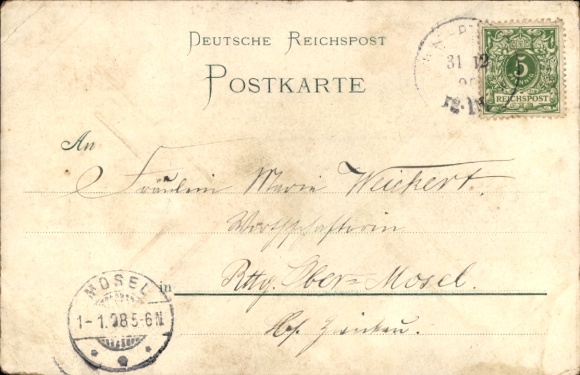 DEUTSCHE REICHSPOST
POSTKARTE
31 12
5
REICHSPOST
An
Fräulein Marie Weickert.
Wirtschafterin
in Rttg. Ober-Mosel.
b/. Zwickau.
MOSEL
1-1.98 5-6N.